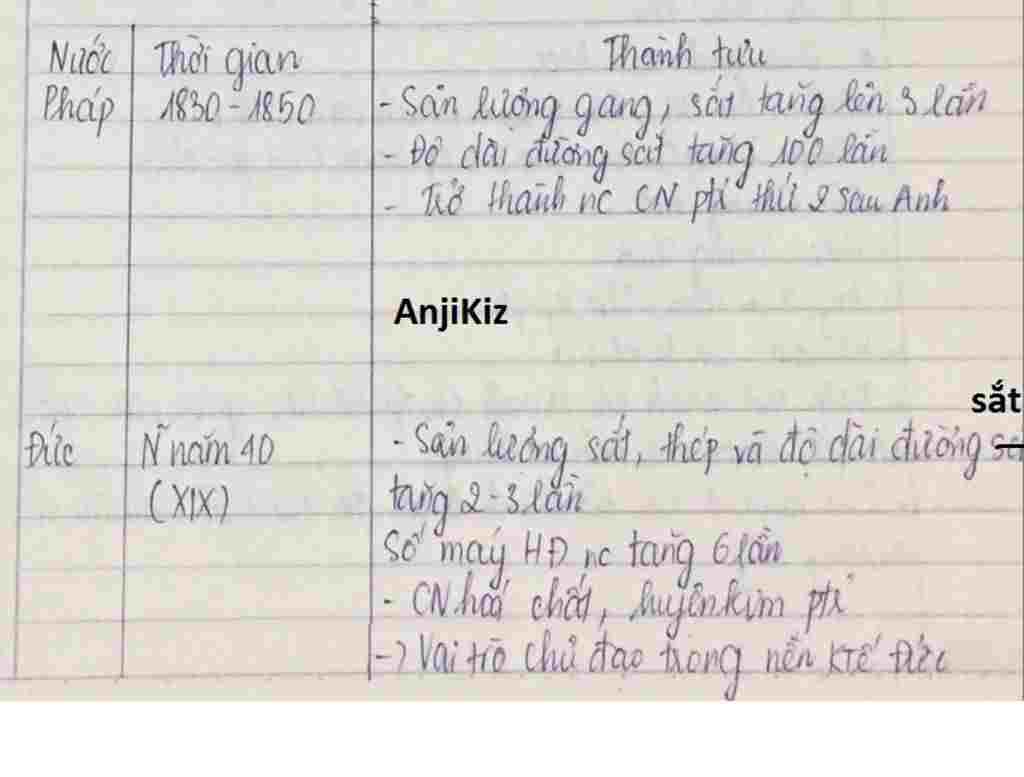 Nước Thời gian Thành tựu
Pháp 1830-1850 - Sản lượng gang, sắt tăng lên 3 lần
- Độ dài đường sắt tăng 100 lần
- Trở thành nc CN ptr thứ 2 sau Anh
AnjiKiz
sắt
Đức N~ năm 40 - Sản lượng sắt, thép và độ dài đường
(XIX) tăng 2-3 lần
Số máy HĐ nc tăng 6 lần
- CN hoá chất, luyện kim ptr
-> Vai trò chủ đạo trong nền Ktế Đức